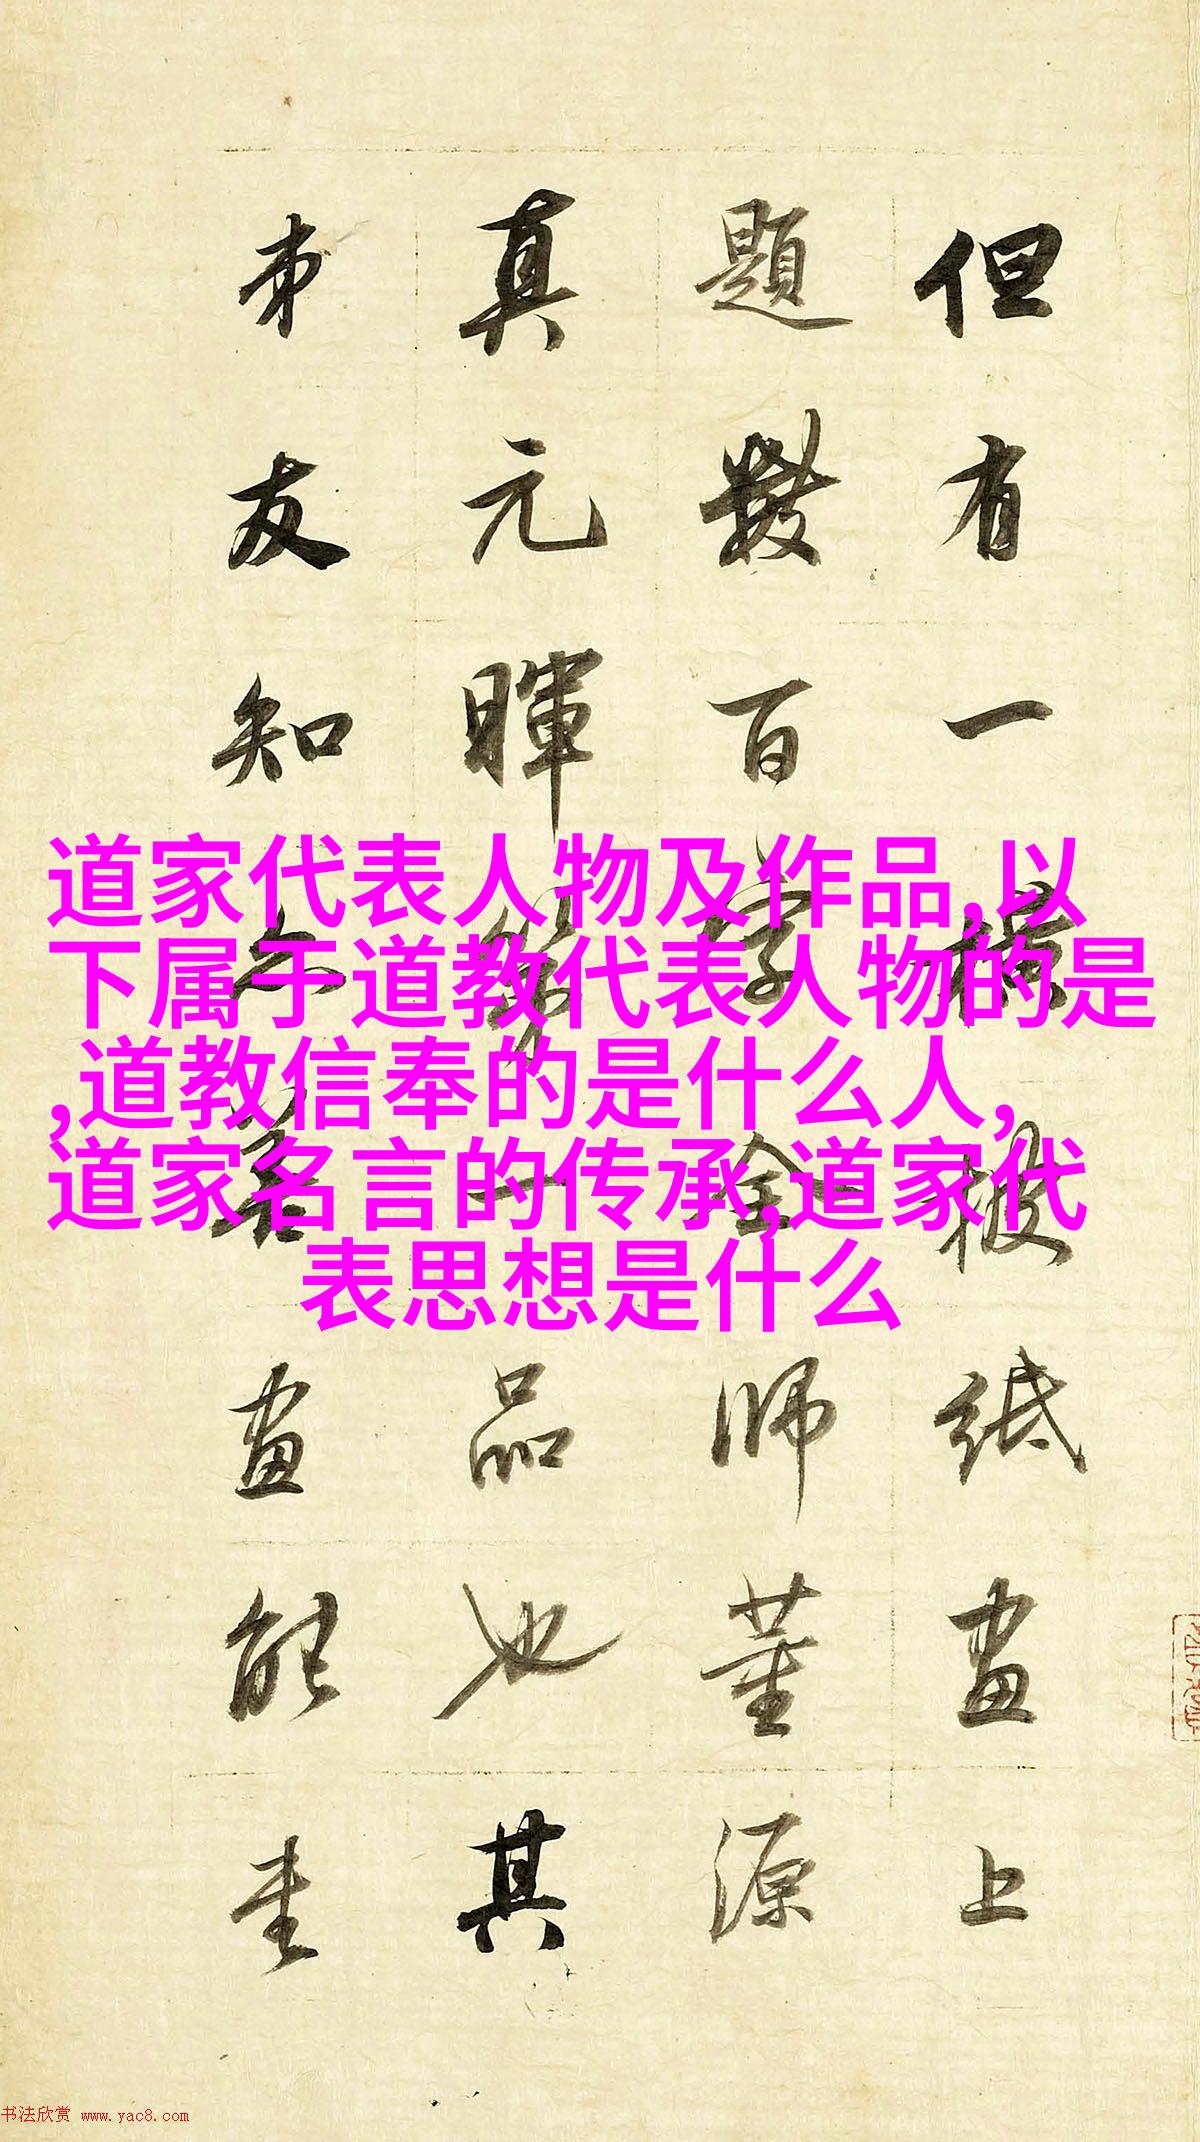 道家代表人物及作品,以
下属于道教代表人物的是
,道教信奉的是什么人,
道家名言的传承,道家代
表思想是什么
但有一橫披紙畫上
題數百字全師董源
真元暉第一品也其
友知
畫能
书法欣赏 www.yac8.com